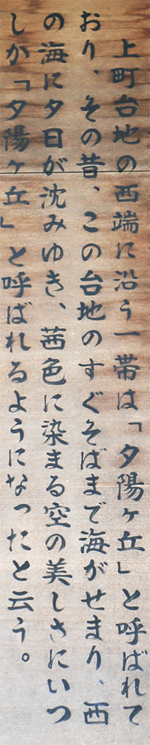 上町台地の西端に沿う一帯は「夕陽ヶ丘」と呼ばれて
おり、その昔、この台地のすぐそばまで海がせまり、西
の海に夕日が沈みゆき、茜色に染まる空の美しさにいつ
しか「夕陽ヶ丘」と呼ばれるようになったと云う。